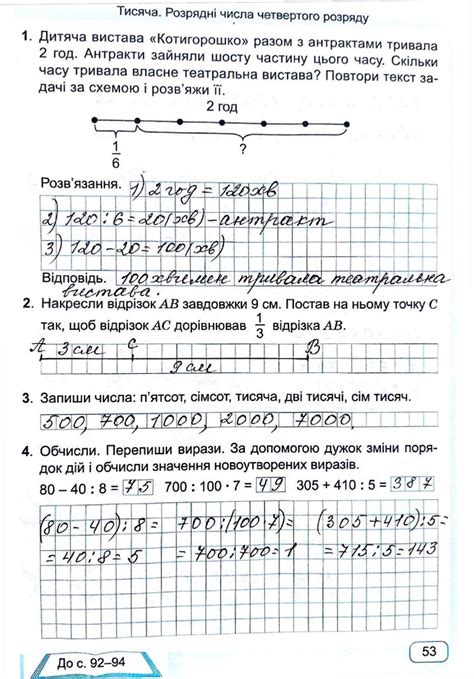 Тисяча. Розрядні числа четвертого розряду
1. Дитяча вистава «Котигорошко» разом з антрактами тривала
2 год. Антракти зайняли шосту частину цього часу. Скільки
часу тривала власне театральна вистава? Повтори текст за-
дачі за схемою і розв'яжи її.
2 год
1/6 ?
Розв'язання. 1) 2 год = 120 хв
2) 120 : 6 = 20 (хв) – антракт
3) 120 – 20 = 100 (хв)
Відповідь. 100 хвилин тривала театральна
вистава.
2. Накресли відрізок AB завдовжки 9 см. Постав на ньому точку C
так, щоб відрізок AC дорівнював 1/3 відрізка AB.
A 3 см C B
9 см
3. Запиши числа: п'ятсот, сімсот, тисяча, дві тисячі, сім тисяч.
500, 700, 1000, 2000, 7000.
4. Обчисли. Перепиши вирази. За допомогою дужок зміни поря-
док дій і обчисли значення новоутворених виразів.
80 – 40 : 8 = 75 700 : 100 · 7 = 49 305 + 410 : 5 = 387
(80 – 40) : 8 = 700 : (100 · 7) = (305 + 410) : 5 =
= 40 : 8 = 5 = 700 : 700 = 1 = 715 : 5 = 143
До с. 92–94
53